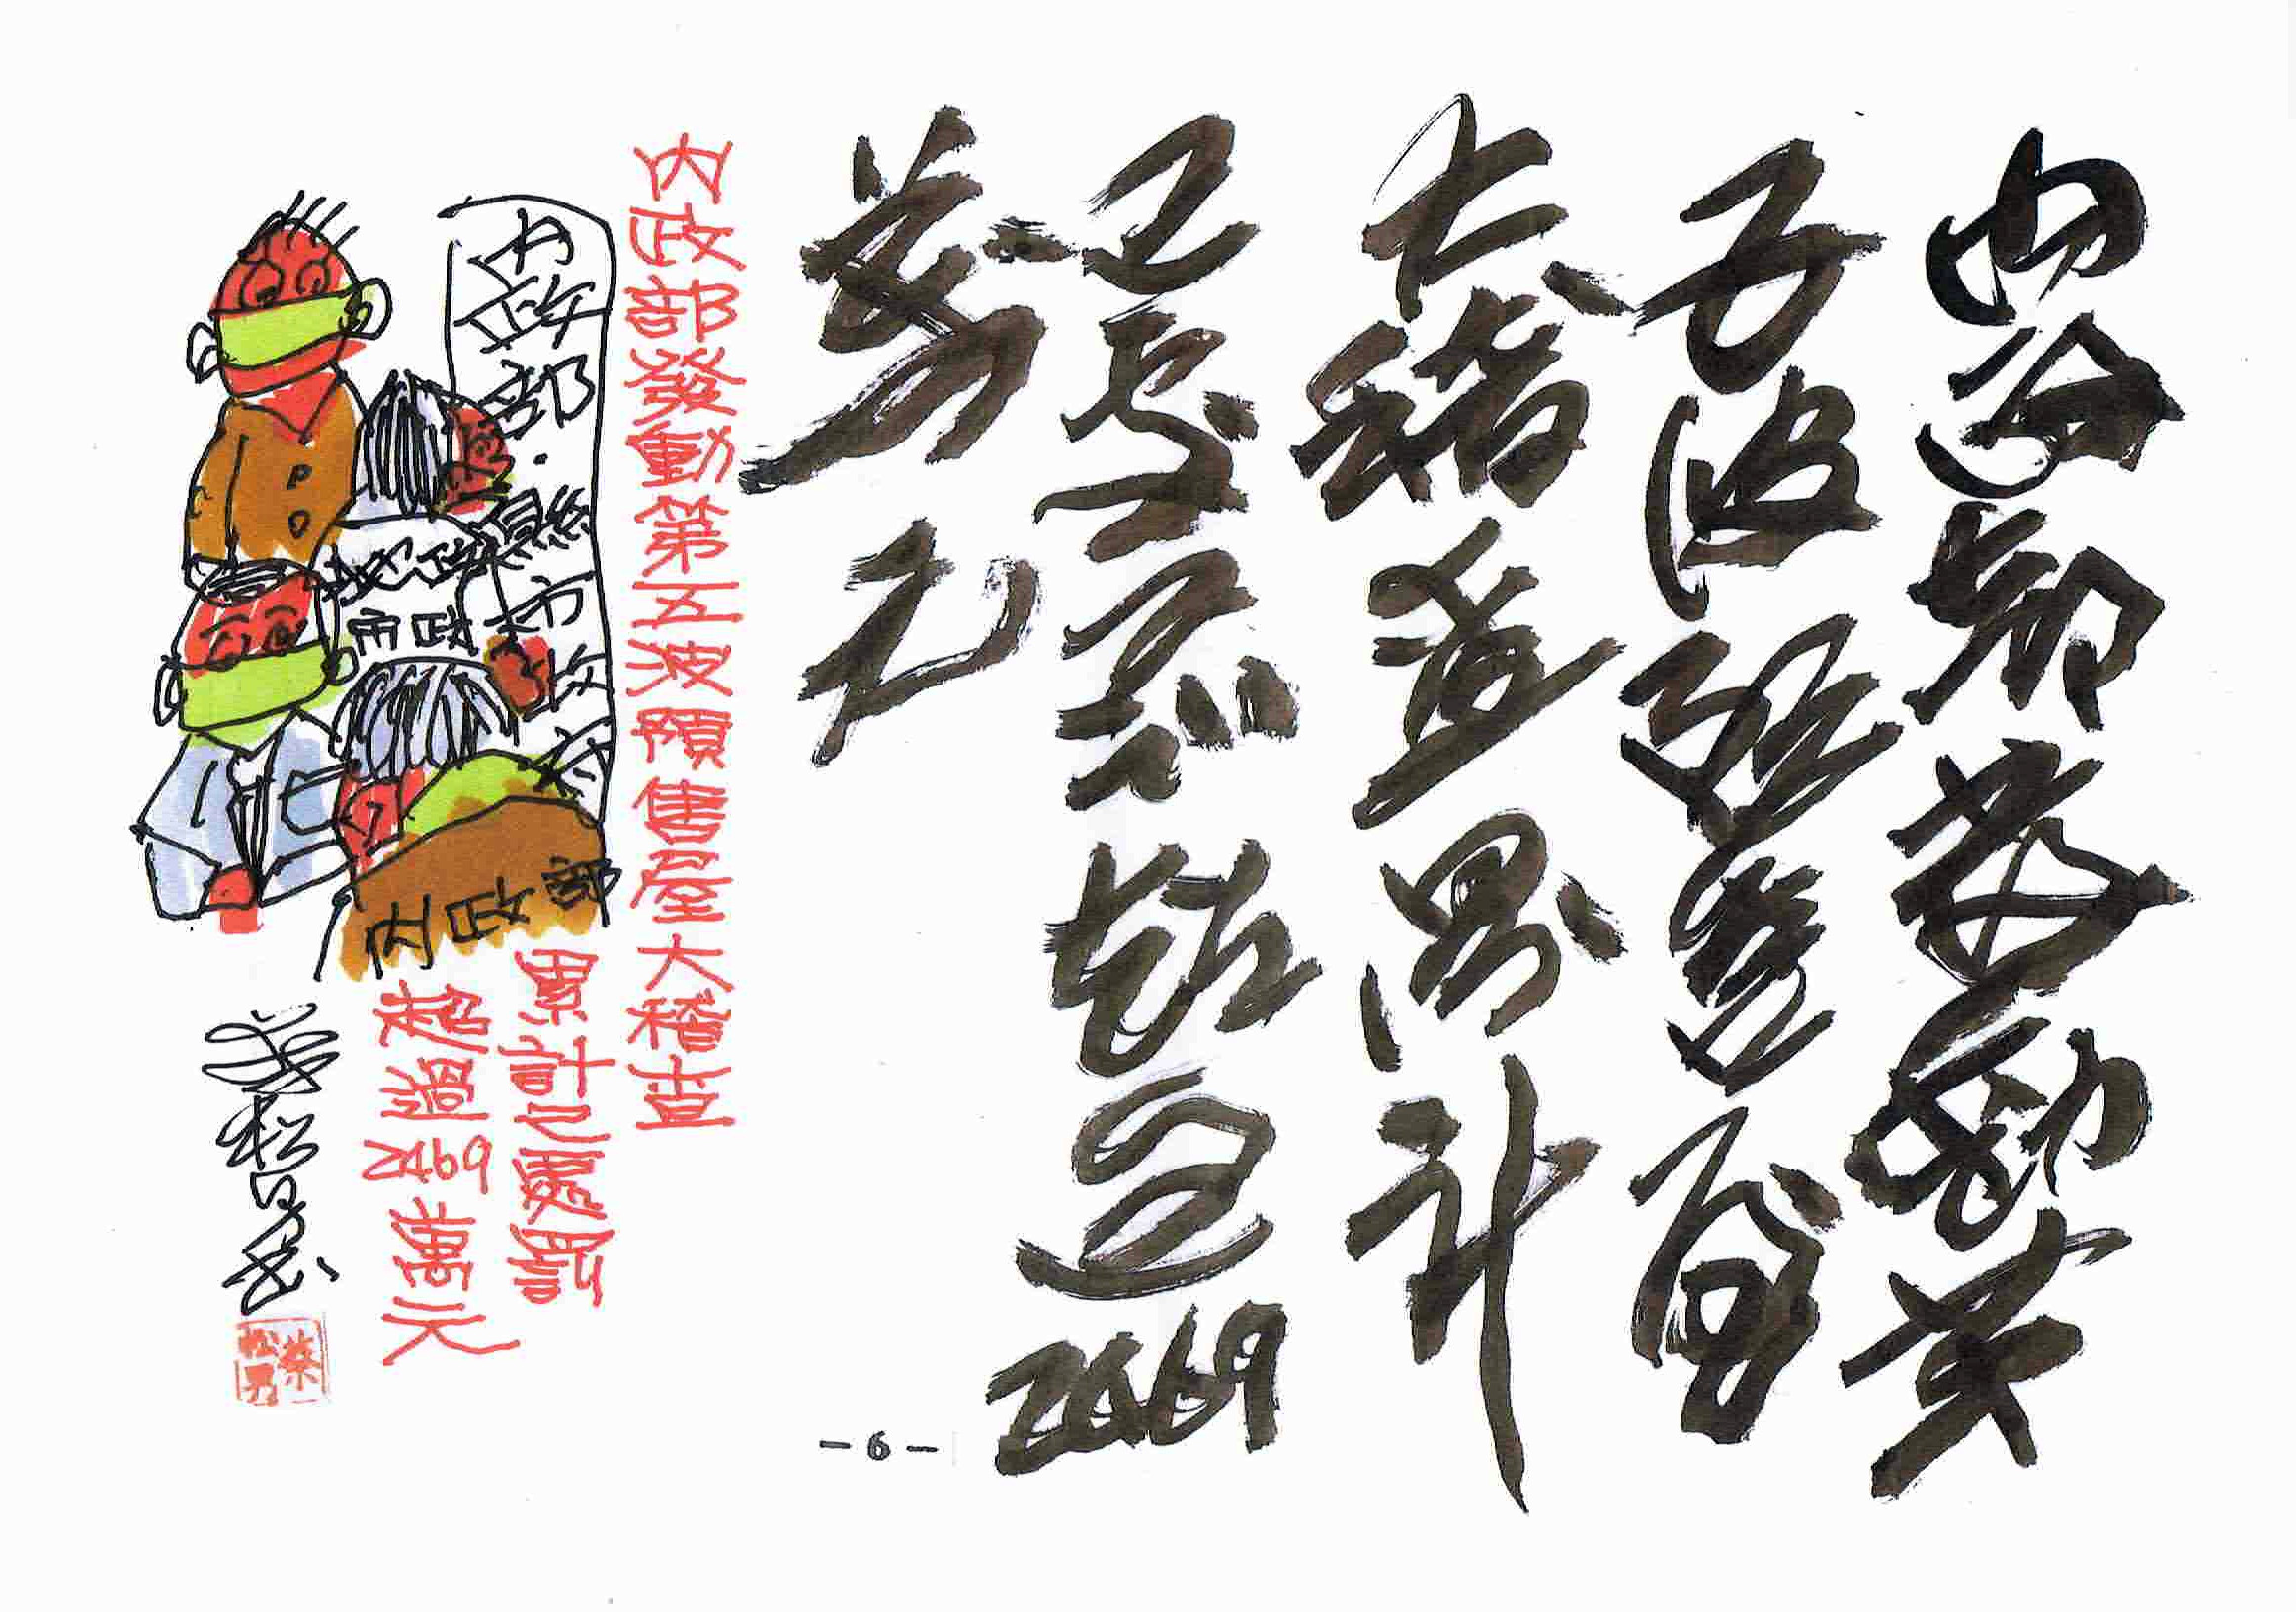 內政部發動第
五波預售屋
大稽查累計
已處罰超過2469
萬元
內政部發動第五波預售屋大稽查
累計已處罰
超過2469萬元
內政部·縣市政府
地政
市政
內政部
蔡松男